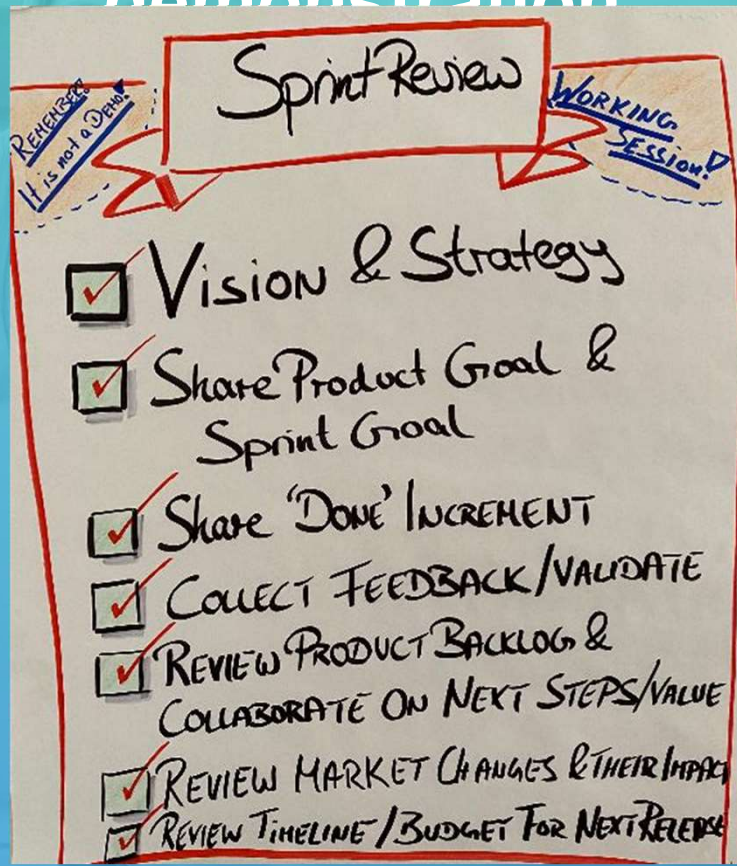 Demonstration
Sprint Review
REMEMBER!
It is not a DEMO!
WORKING
SESSION!
Vision & Strategy
Share Product Goal &
Sprint Goal
Share 'DONE' INCREMENT
COLLECT FEEDBACK/VALIDATE
REVIEW PRODUCT BACKLOG &
COLLABORATE ON NEXT STEPS/VALUE
REVIEW MARKET CHANGES & THEIR IMPACT
REVIEW TIMELINE/BUDGET FOR NEXT RELEASE